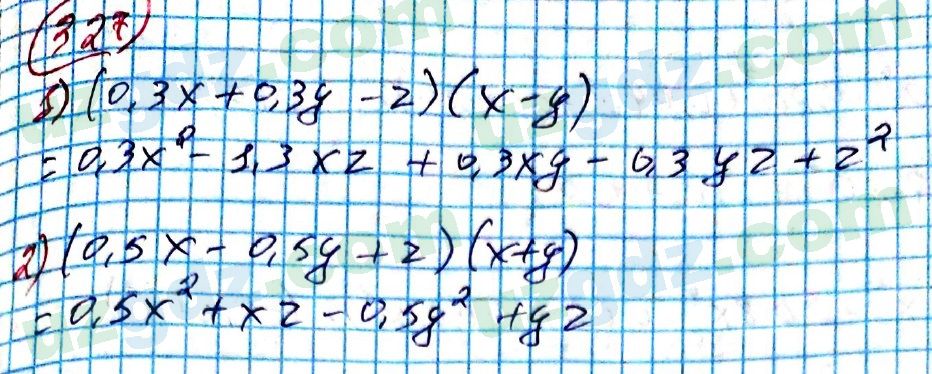 327
1) (0,3x + 0,3y - z) (x - y)
= 0,3x² - 1,3xz + 0,3xy - 0,3yz + z²
2) (0,5x - 0,5y + z) (x + y)
= 0,5x² + xz - 0,5y² + yz